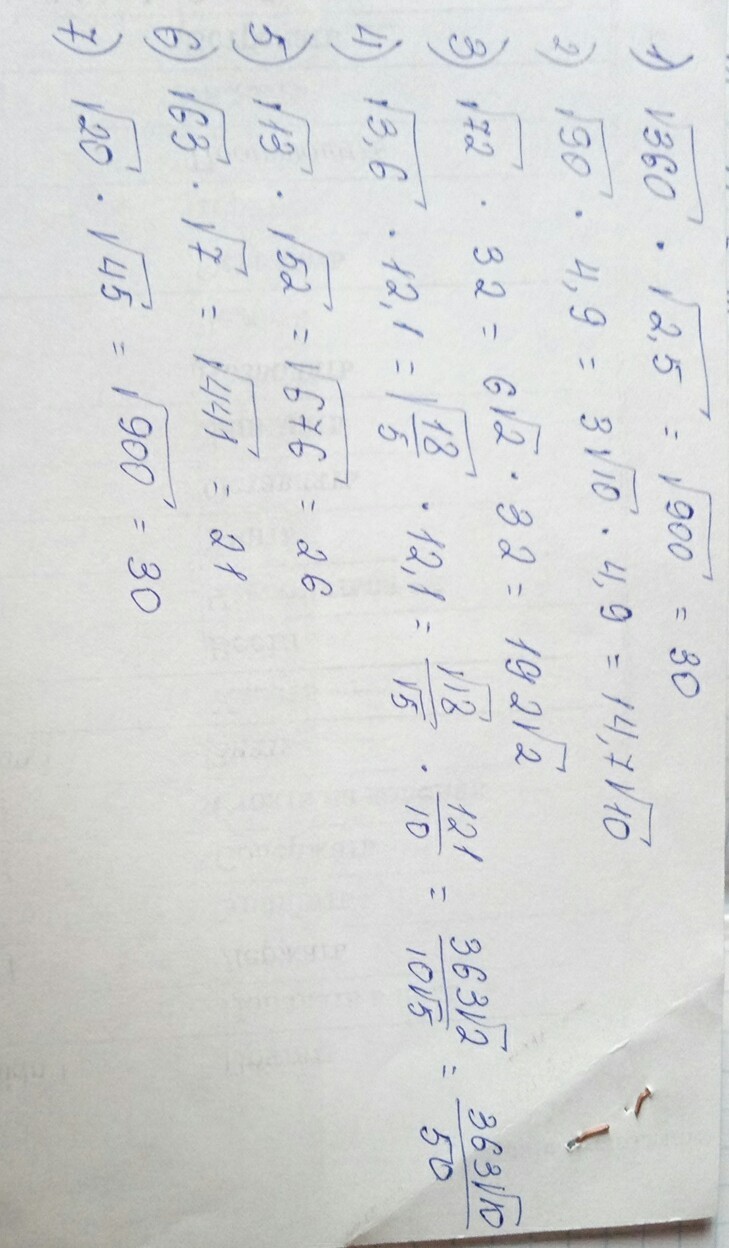 1) √360 · √2,5 = √900 = 30
2) √90 · 4,9 = 3√10 · 4,9 = 14,7√10
3) √72 · 32 = 6√2 · 32 = 192√2
4) √3,6 · 12,1 = √18/5 · 12,1 = √18/√5 · 121/10 = 363√2/10√5 = 363√10/50
5) √13 · √52 = √676 = 26
6) √63 · √7 = √441 = 21
7) √20 · √45 = √900 = 30